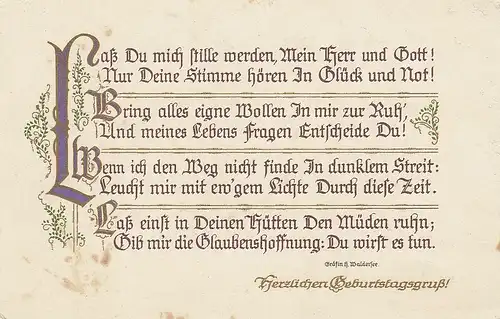 Laß Du mich stille werden, Mein Herr und Gott!
Nur Deine Stimme hören In Glück und Not!
Bring alles eigne Wollen In mir zur Ruh',
Und meines Lebens Fragen Entscheide Du!
Wenn ich den Weg nicht finde In dunklem Streit:
Leucht mir mit ew'gem Lichte Durch diese Zeit.
Laß einst in Deinen Hütten Den Müden ruhn;
Gib mir die Glaubenshoffnung: Du wirst es tun.
Gräfin H. Waldersee
Herzlichen Geburtstagsgruß!